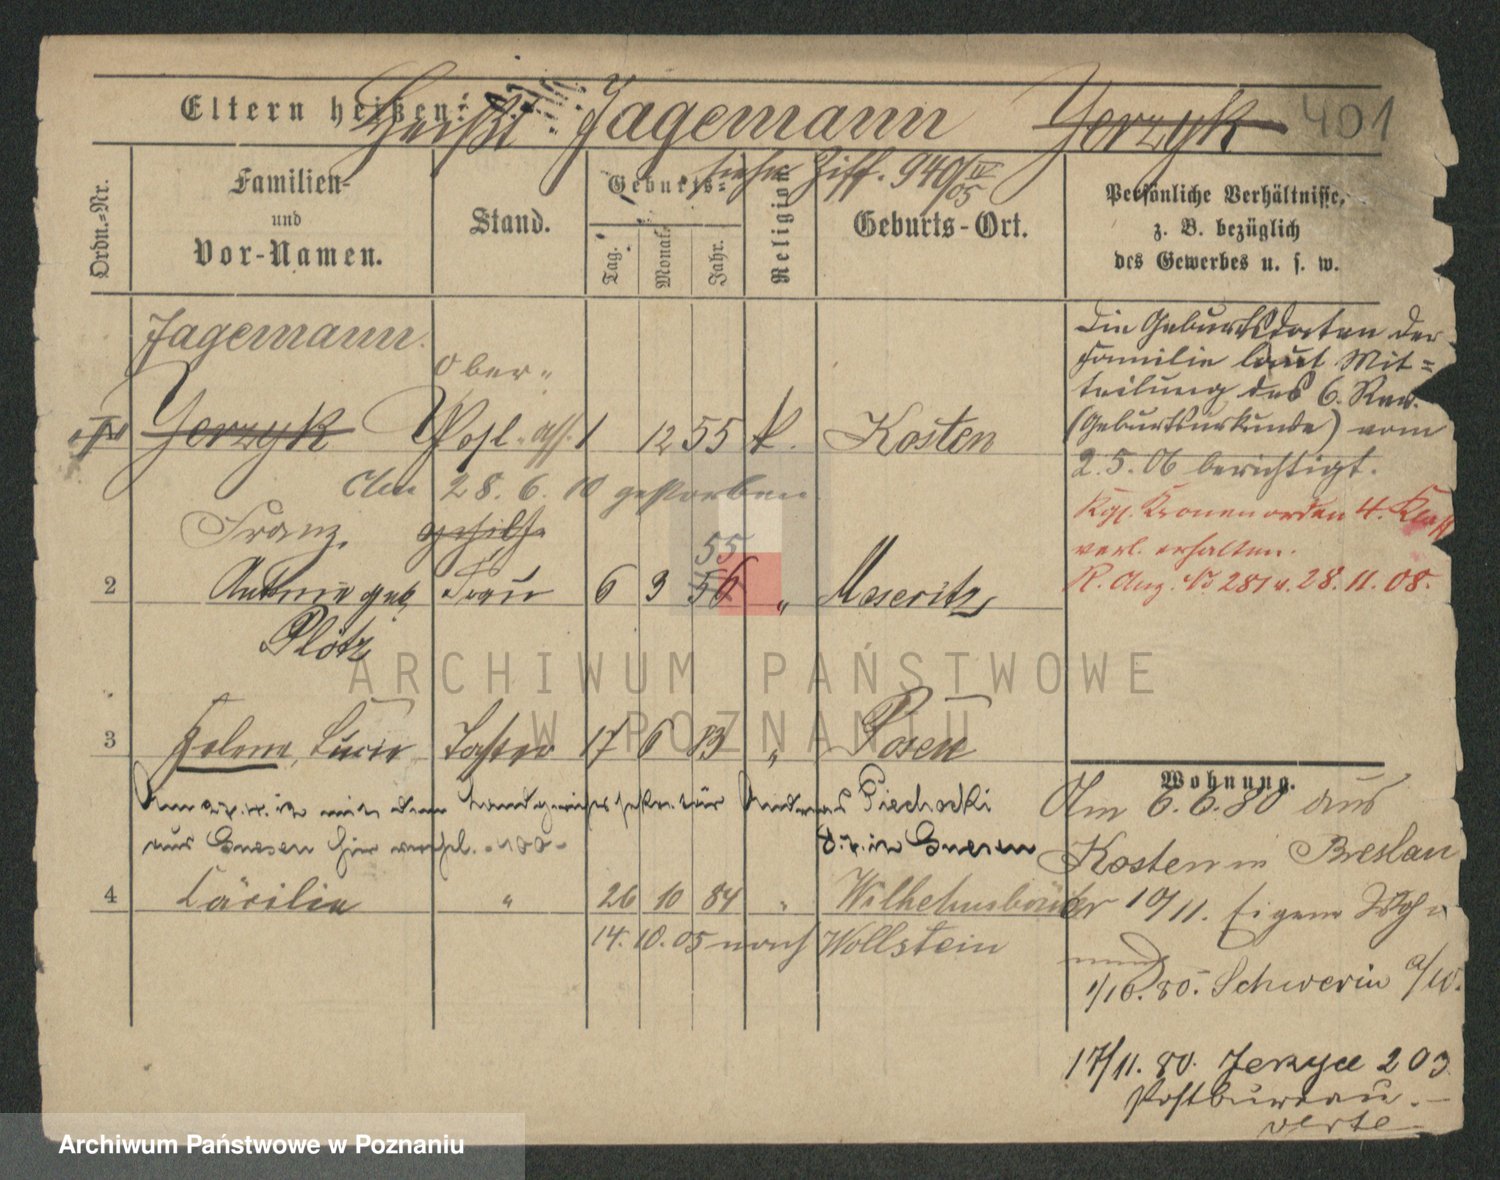 Eltern heißen: heißt Jagemann Jerzyk 401
siehe Ziff. 940/05 IV
Ordn.-Nr.
Familien-
und
Vor-Namen.
Stand.
Geburts-
Tag.
Monat.
Jahr.
Religion
Geburts-Ort.
Persönliche Verhältnisse,
z. B. bezüglich
des Gewerbes u. s. w.
Jagemann.
Ober-
Jerzyk Post-ass. 1 12 55 k. Kosten
Am 28. 6. 10 gestorben
Franz. gehilfe
55
2 geb. Frau 6 3 56 " Meseritz
Plötz
3 Helene, Lucie Tochter 17 6 83 " Posen
mit dem Landgerichtssekretär Andreas Piechocki
aus Gnesen hier verehel.
in Gnesen
4 Cäcilie " 26 10 84 "
14. 10. 05 nach Wollstein
Die Geburtsdaten der
Familie laut Mit-
teilung des 6. Rev.
(Geburtsurkunde) vom
2. 5. 06 berichtigt.
Kgl. Kronenorden 4. Klasse
verl. erhalten.
R. Anz. No 281 v. 28. 11. 08.
Wohnung.
Am 6. 6. 80 aus
Kosten Breslau
10/11.
1/10. 80. Schwerin a/W.
17/11. 80. Jerzyce 203
Postbureau.
verte
ARCHIWUM PAŃSTWOWE
W POZNANIU
Archiwum Państwowe w Poznaniu